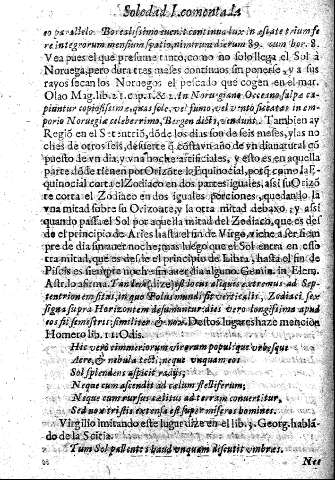 Soledad I. comentada
eo parallelo. Borealissimo euenit continua lux in aestate trium fe
re integrorum mensium spatio, nimirum dierum 89. cum hor. 8.
Vea pues el que presume tanto, como no solo llega el Sol à
Noruega, pero dura tres meses continuos sin ponerse, y a sus
rayos secan los Noruegos el pescado que cogen en el mar.
Olao Mag. lib. 21. cap. 1. & 2. In Norugiano Oceano, salpe ca
piuntur copiosissime, quae sole, vel fumo, vel vento siccatae in em
porio Noruegiae celeberrimo, Bergen dicto, vendunt. Tambien ay
Regiõ en el Setentriõ, dõde los dias son de seis meses, y las no
ches de otros seis, de suerte q̃ con un dia natural cõ
puesto de vn dia, y vna noche artificiales, y esto es en aquella
parte dõde tienen por Orizõte la Equinocial, porq̃ como la E
quinocial corta el Zodiaco en dos partes iguales, assi su Orizõ
te corta el Zodiaco en dos iguales porciones, quedando la
vna mitad sobre su Orizonte, y la otra mitad debaxo, y assi
quando passa el Sol por aquella mitad del Zodiaco, que es des
de el principio de Aries hasta el fin de Virgo, viene a ser siem
pre de dia sin auer noche; mas luego que el Sol entra en esso
tra mitad, que es desde el principio de Libra, hasta el fin de
Piscis es siempre noche sin auer dia alguno. Gemin. in Elem.
Astr. lo afirma. Tandem (dize) est locus aliquis extremus ad Sep
tentrionem situs, in quo Polus mundi fit verticalis, Zodiaci, sex
signa supra Horizontem desumuntur: dies vero longissimus apud
eos fit semestris: similiter & nox. Destos lugares haze mencion
Homero lib. 11. Odis.
Hic vero cimmeriorum virorum populique vrbesque
Aere, & nebula tecti; neque vnquam eos
Sol splendens aspicit radijs;
Neque cum ascendit ad caelum stelliferum;
Neque cum rursus caelitus ad terram conuertitur,
Sed nox tristis extensa est super miseros homines.
Virgilio imitando este lugar dize en el lib. 3. Georg. hablã
do de la Scitia.
Tum Sol pallentes haud vnquam discutit vmbras.
Nec